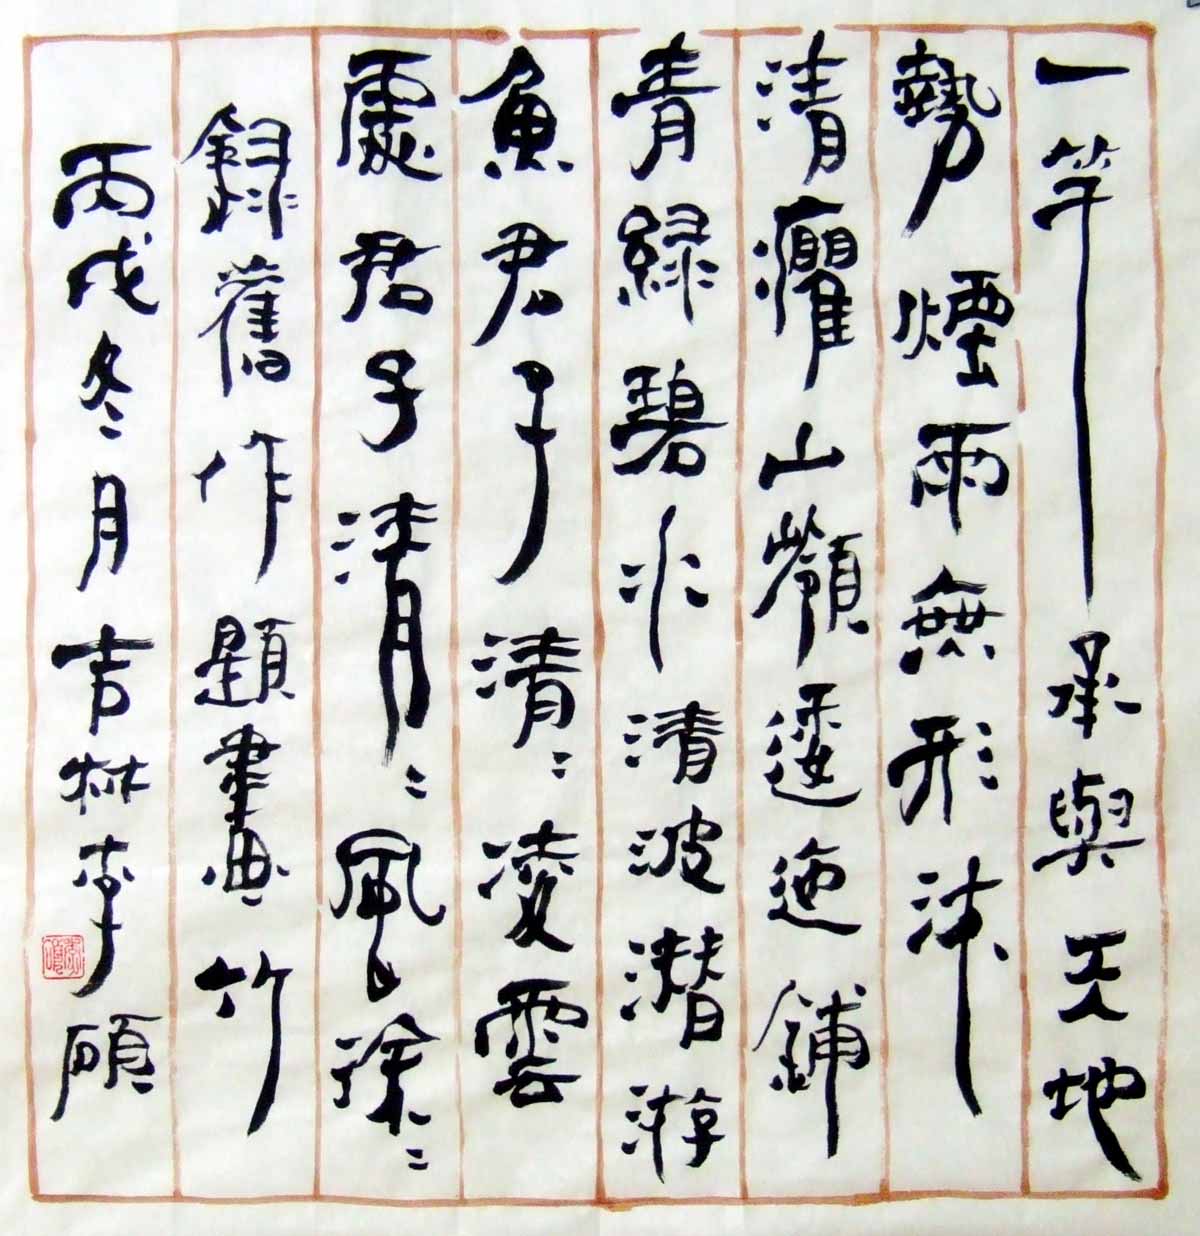 一竿承與天地
勢煙雨無形沐
清癯山嶺逶迤鋪
青綠碧水清波潛游
魚君子清〻凌雲
處君子清〻風徐〻
錄舊作題畫竹
丙戌冬月吉林李